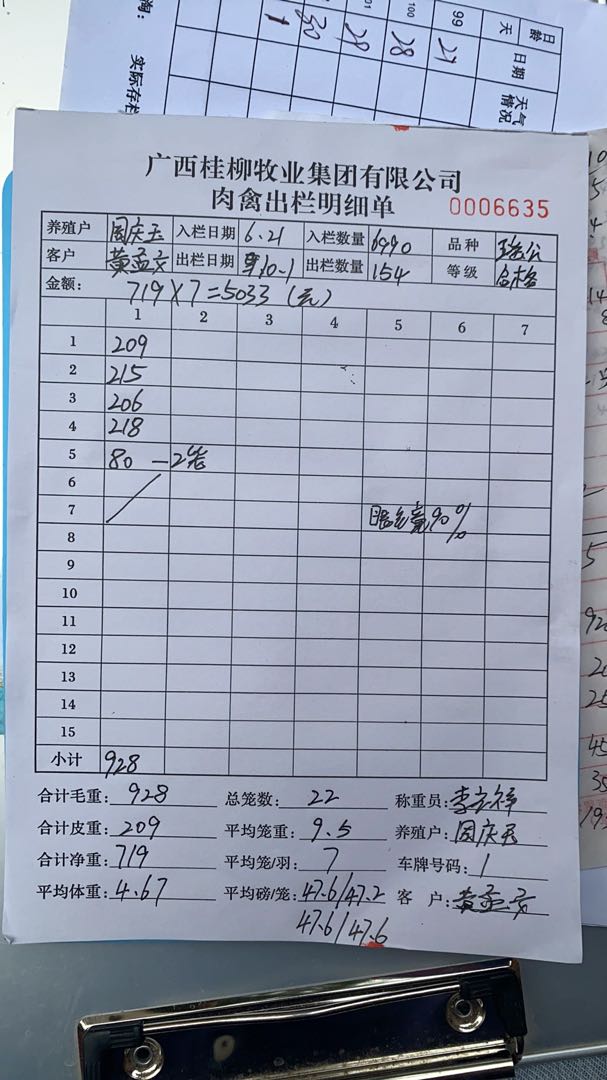 日龄 99 100 01
天
日期 27 28 29 30 1
天气情况
实际存栏
广西桂柳牧业集团有限公司
肉禽出栏明细单 0006635
养殖户 周庆玉 入栏日期 6.21 入栏数量 6990 品种
客户 黄孟文 出栏日期 10.1 出栏数量 154 等级 合格
金额: 719×7=5033(元)
1 2 3 4 5 6 7
1 209
2 215
3 206
4 218
5 80 —2笼
6
7 90%
8
9
10
11
12
13
14
15
小计 928
合计毛重: 928 总笼数: 22 称重员:
合计皮重: 209 平均笼重: 9.5 养殖户: 周庆玉
合计净重: 719 平均笼/羽: 7 车牌号码: 1
平均体重: 4.67 平均磅/笼: 47.6/47.2 客 户: 黄孟文
47.6/47.6